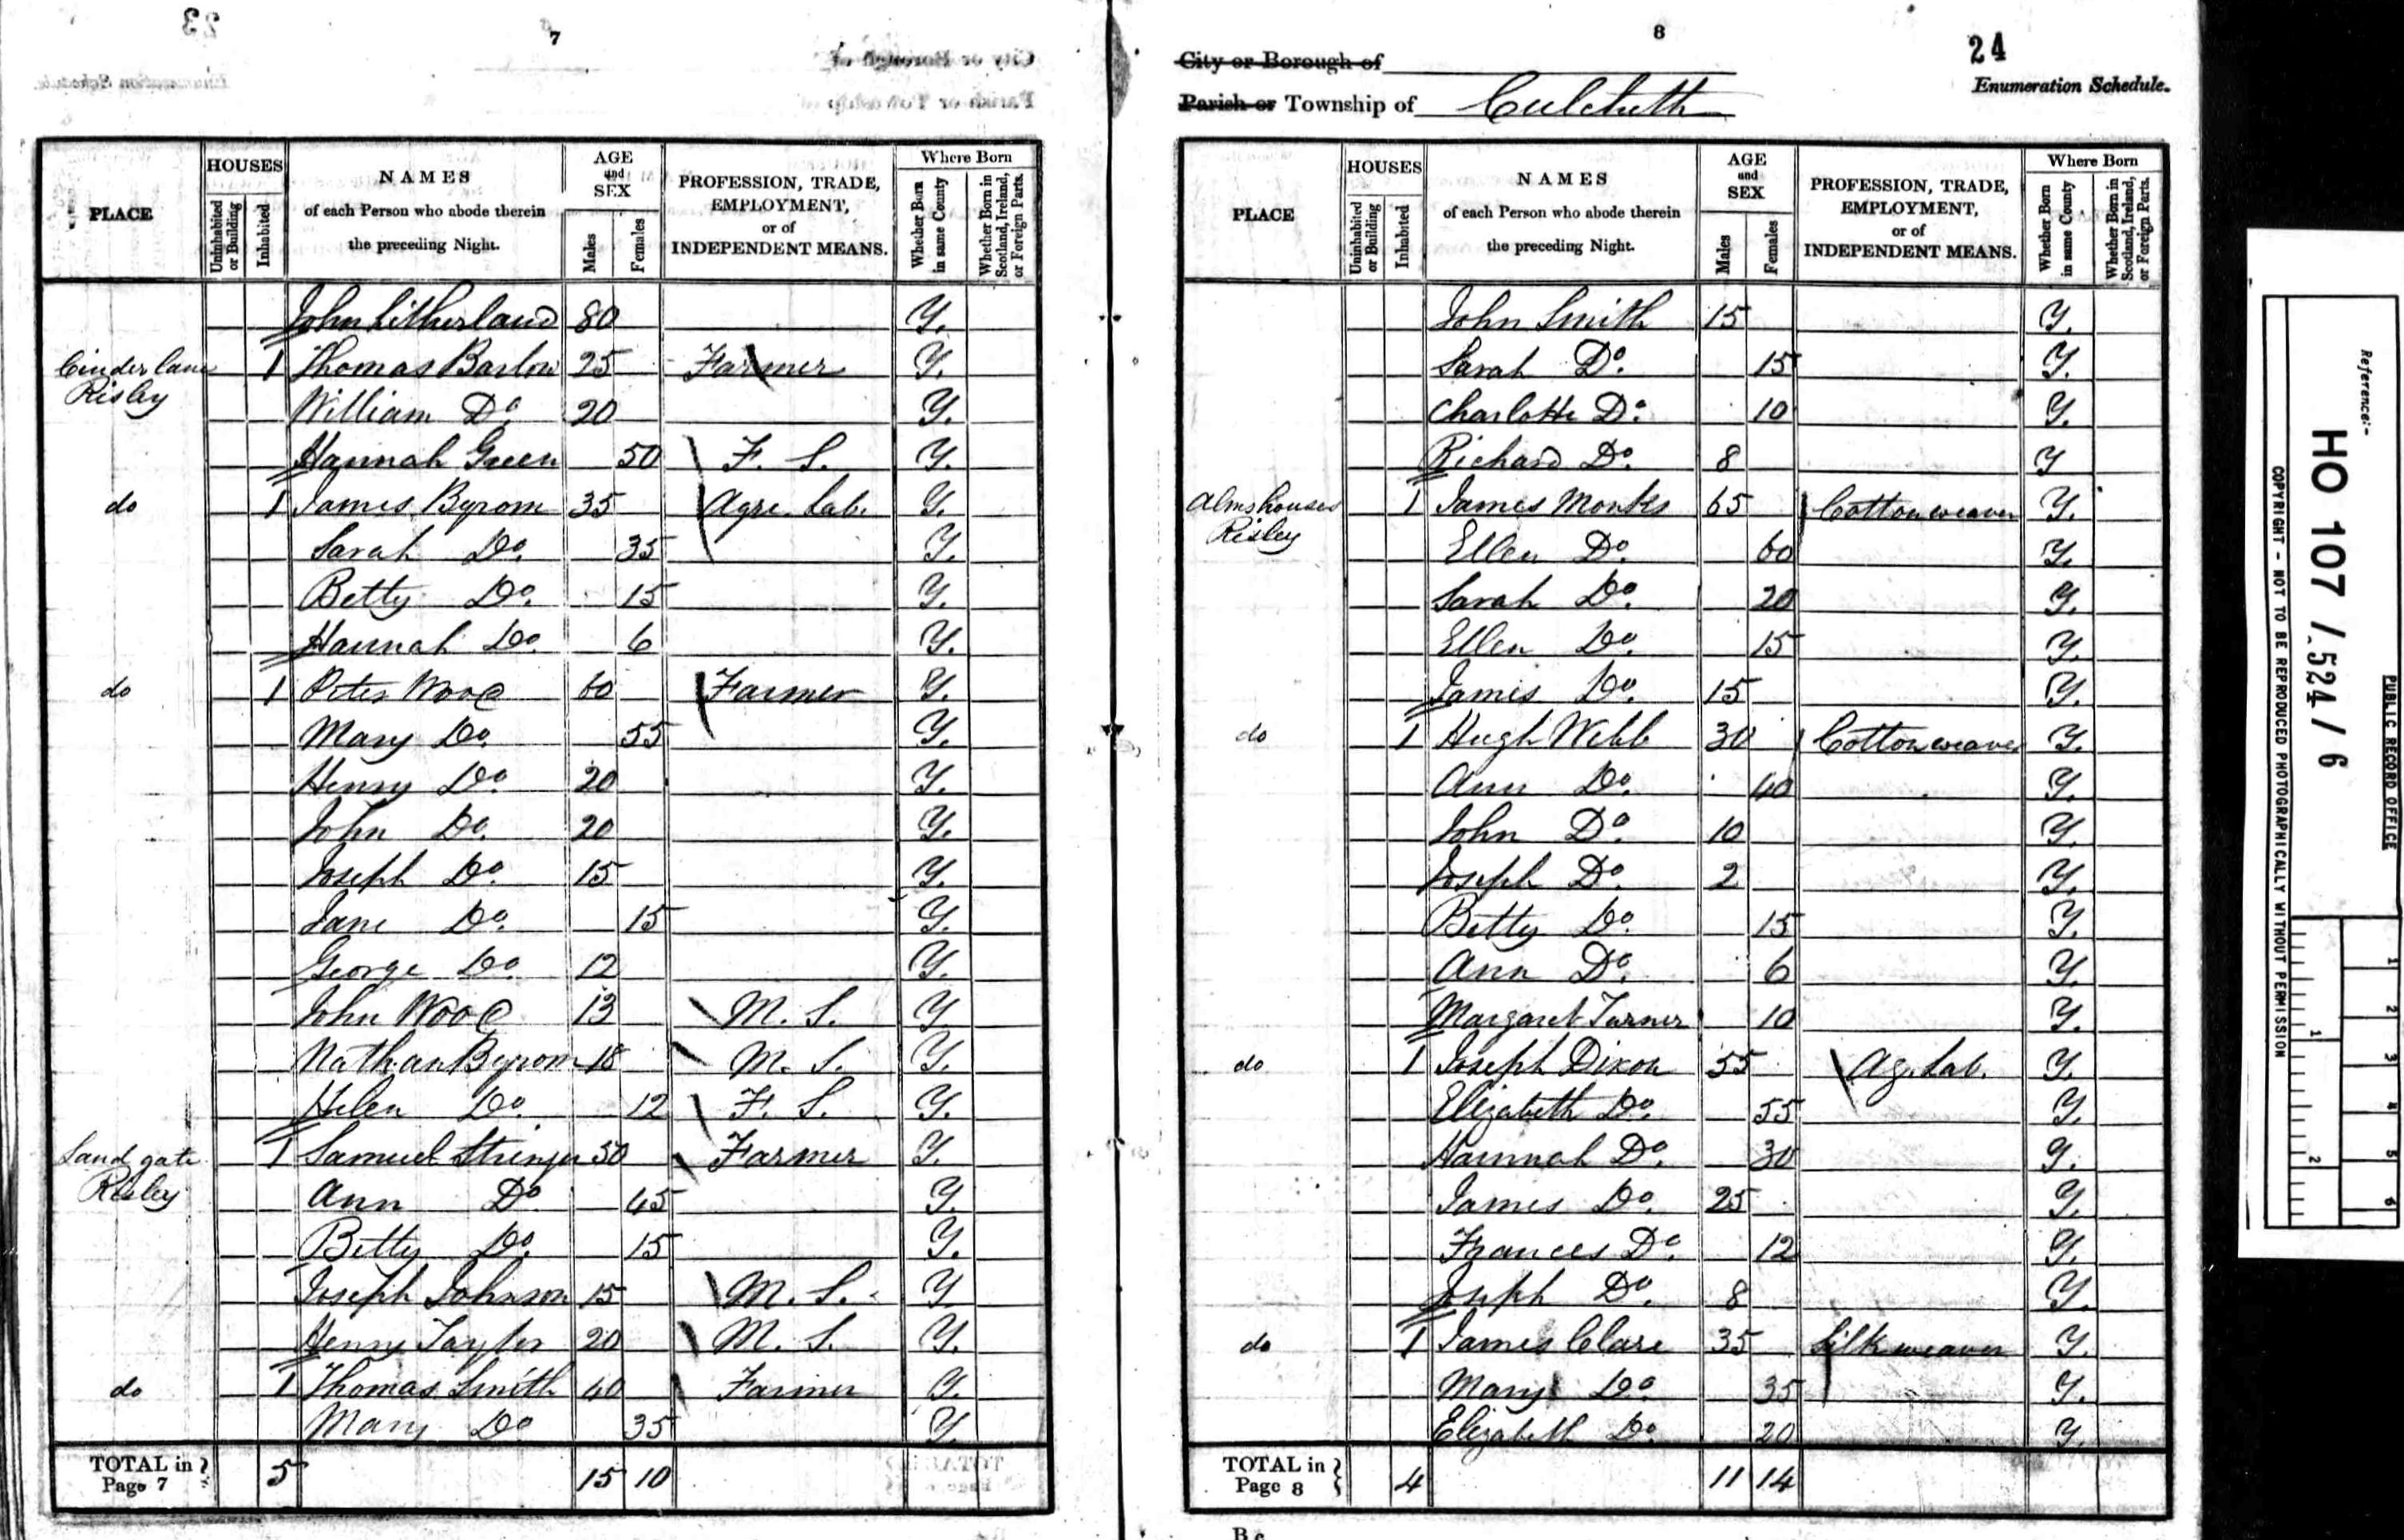 7
PLACE HOUSES Uninhabited or Building Inhabited NAMES of each Person who abode therein the preceding Night. AGE and SEX Males Females PROFESSION, TRADE, EMPLOYMENT, or of INDEPENDENT MEANS. Where Born Whether Born in same County Whether Born in Scotland, Ireland, or Foreign Parts.
John Litherland 80 Y.
Cinder lane 1 Thomas Barlow 25 Farmer Y.
Risley William Do. 20 Y.
Hannah Green 50 F. S. Y.
do 1 James Byrom 35 Agri. Lab. Y.
Sarah Do. 35 Y.
Betty Do. 15 Y.
Hannah Do. 6 Y.
do 1 Peter Wood 60 Farmer Y.
Mary Do. 55 Y.
Henry Do. 20 Y.
John Do. 20 Y.
Joseph Do. 15 Y.
Jane Do. 15 Y.
George Do. 12 Y.
John Wood 13 M. S. Y
Nathan Byrom 18 M. S. Y.
Helen Do. 12 F. S. Y.
Sand gate 1 Samuel Stringer 50 Farmer Y.
Risley Ann Do. 45 Y.
Betty Do. 15 Y.
Joseph Johnson 15 M. S. Y
Henry Taylor 20 M. S. Y.
do 1 Thomas Smith 40 Farmer Y.
Mary Do 35 Y.
TOTAL in Page 7 5 15 10
8
24
City or Borough of
Enumeration Schedule.
Parish or Township of Culcheth
PLACE HOUSES Uninhabited or Building Inhabited NAMES of each Person who abode therein the preceding Night. AGE and SEX Males Females PROFESSION, TRADE, EMPLOYMENT, or of INDEPENDENT MEANS. Where Born Whether Born in same County Whether Born in Scotland, Ireland, or Foreign Parts.
John Smith 15 Y.
Sarah Do. 15 Y.
Charlotte Do. 10 Y.
Richard Do. 8 Y
Almshouses 1 James Monks 65 Cotton weaver Y.
Risley Ellen Do. 60 Y.
Sarah Do. 20 Y.
Ellen Do. 15 Y.
James Do. 15 Y.
do 1 Hugh Webb 30 Cotton weaver Y.
Ann Do. 40 Y.
John Do. 10 Y.
Joseph Do. 2 Y.
Betty Do. 15 Y.
Ann Do. 6 Y.
Margaret Turner 10 Y.
do 1 Joseph Dixon 55 Ag. Lab. Y.
Elizabeth Do. 55 Y.
Hannah Do. 30 Y.
James Do. 25 Y.
Frances Do. 12 Y.
Joseph Do. 8 Y.
do 1 James Clare 35 Silk weaver Y.
Mary Do. 35 Y.
Elizabeth Do. 20 Y.
TOTAL in Page 8 4 11 14
PUBLIC RECORD OFFICE
Reference:-
HO 107 / 524 / 6
COPYRIGHT - NOT TO BE REPRODUCED PHOTOGRAPHICALLY WITHOUT PERMISSION
1 2 3 4 5 6
1 2